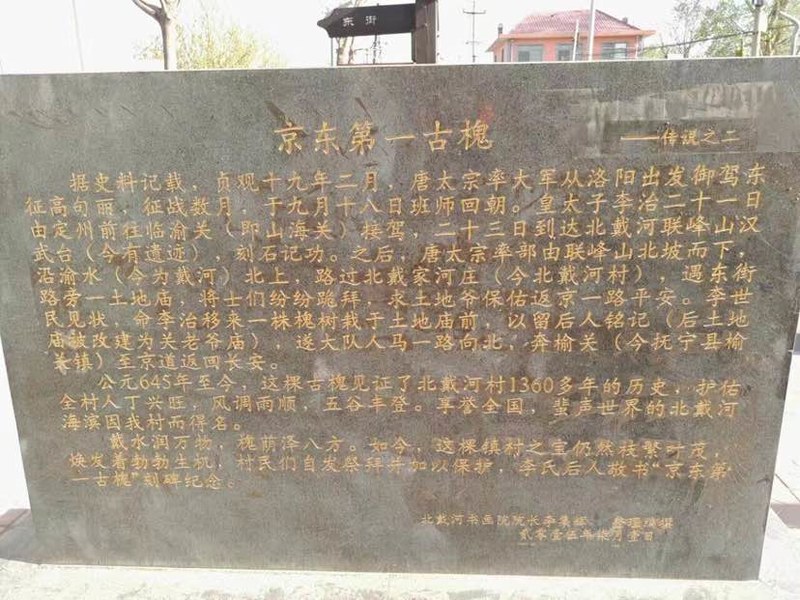 东街
京东第一古槐
——传说之二
据史料记载，贞观十九年二月，唐太宗率大军从洛阳出发御驾东
征高句丽，征战数月，于九月十八日班师回朝。皇太子李治二十一日
由定州前往临渝关（即山海关）接驾，二十三日到达北戴河联峰山汉
武台（今有遗迹），刻石记功。之后，唐太宗率部由联峰山北坡而下，
沿渝水（今为戴河）北上，路过北戴家河庄（今北戴河村），遇东街
路旁一土地庙，将士们纷纷跪拜，求土地爷保佑返京一路平安。李世
民见状，命李治移来一株槐树栽于土地庙前，以留后人铭记（后土地
庙被改建为关老爷庙），遂大队人马一路向北，奔榆关（今抚宁县榆
关镇）至京道返回长安。
公元645年至今，这棵古槐见证了北戴河村1360多年的历史，护佑
全村人丁兴旺，风调雨顺，五谷丰登。享誉全国，蜚声世界的北戴河
海滨因我村而得名。
戴水润万物，槐荫泽八方。如今，这棵镇村之宝仍然枝繁叶茂，
焕发着勃勃生机，村民们自发祭拜并加以保护，李氏后人敬书“京东第
一古槐”刻碑纪念。
北戴河书画院院长李集
贰零壹伍年柒月壹日